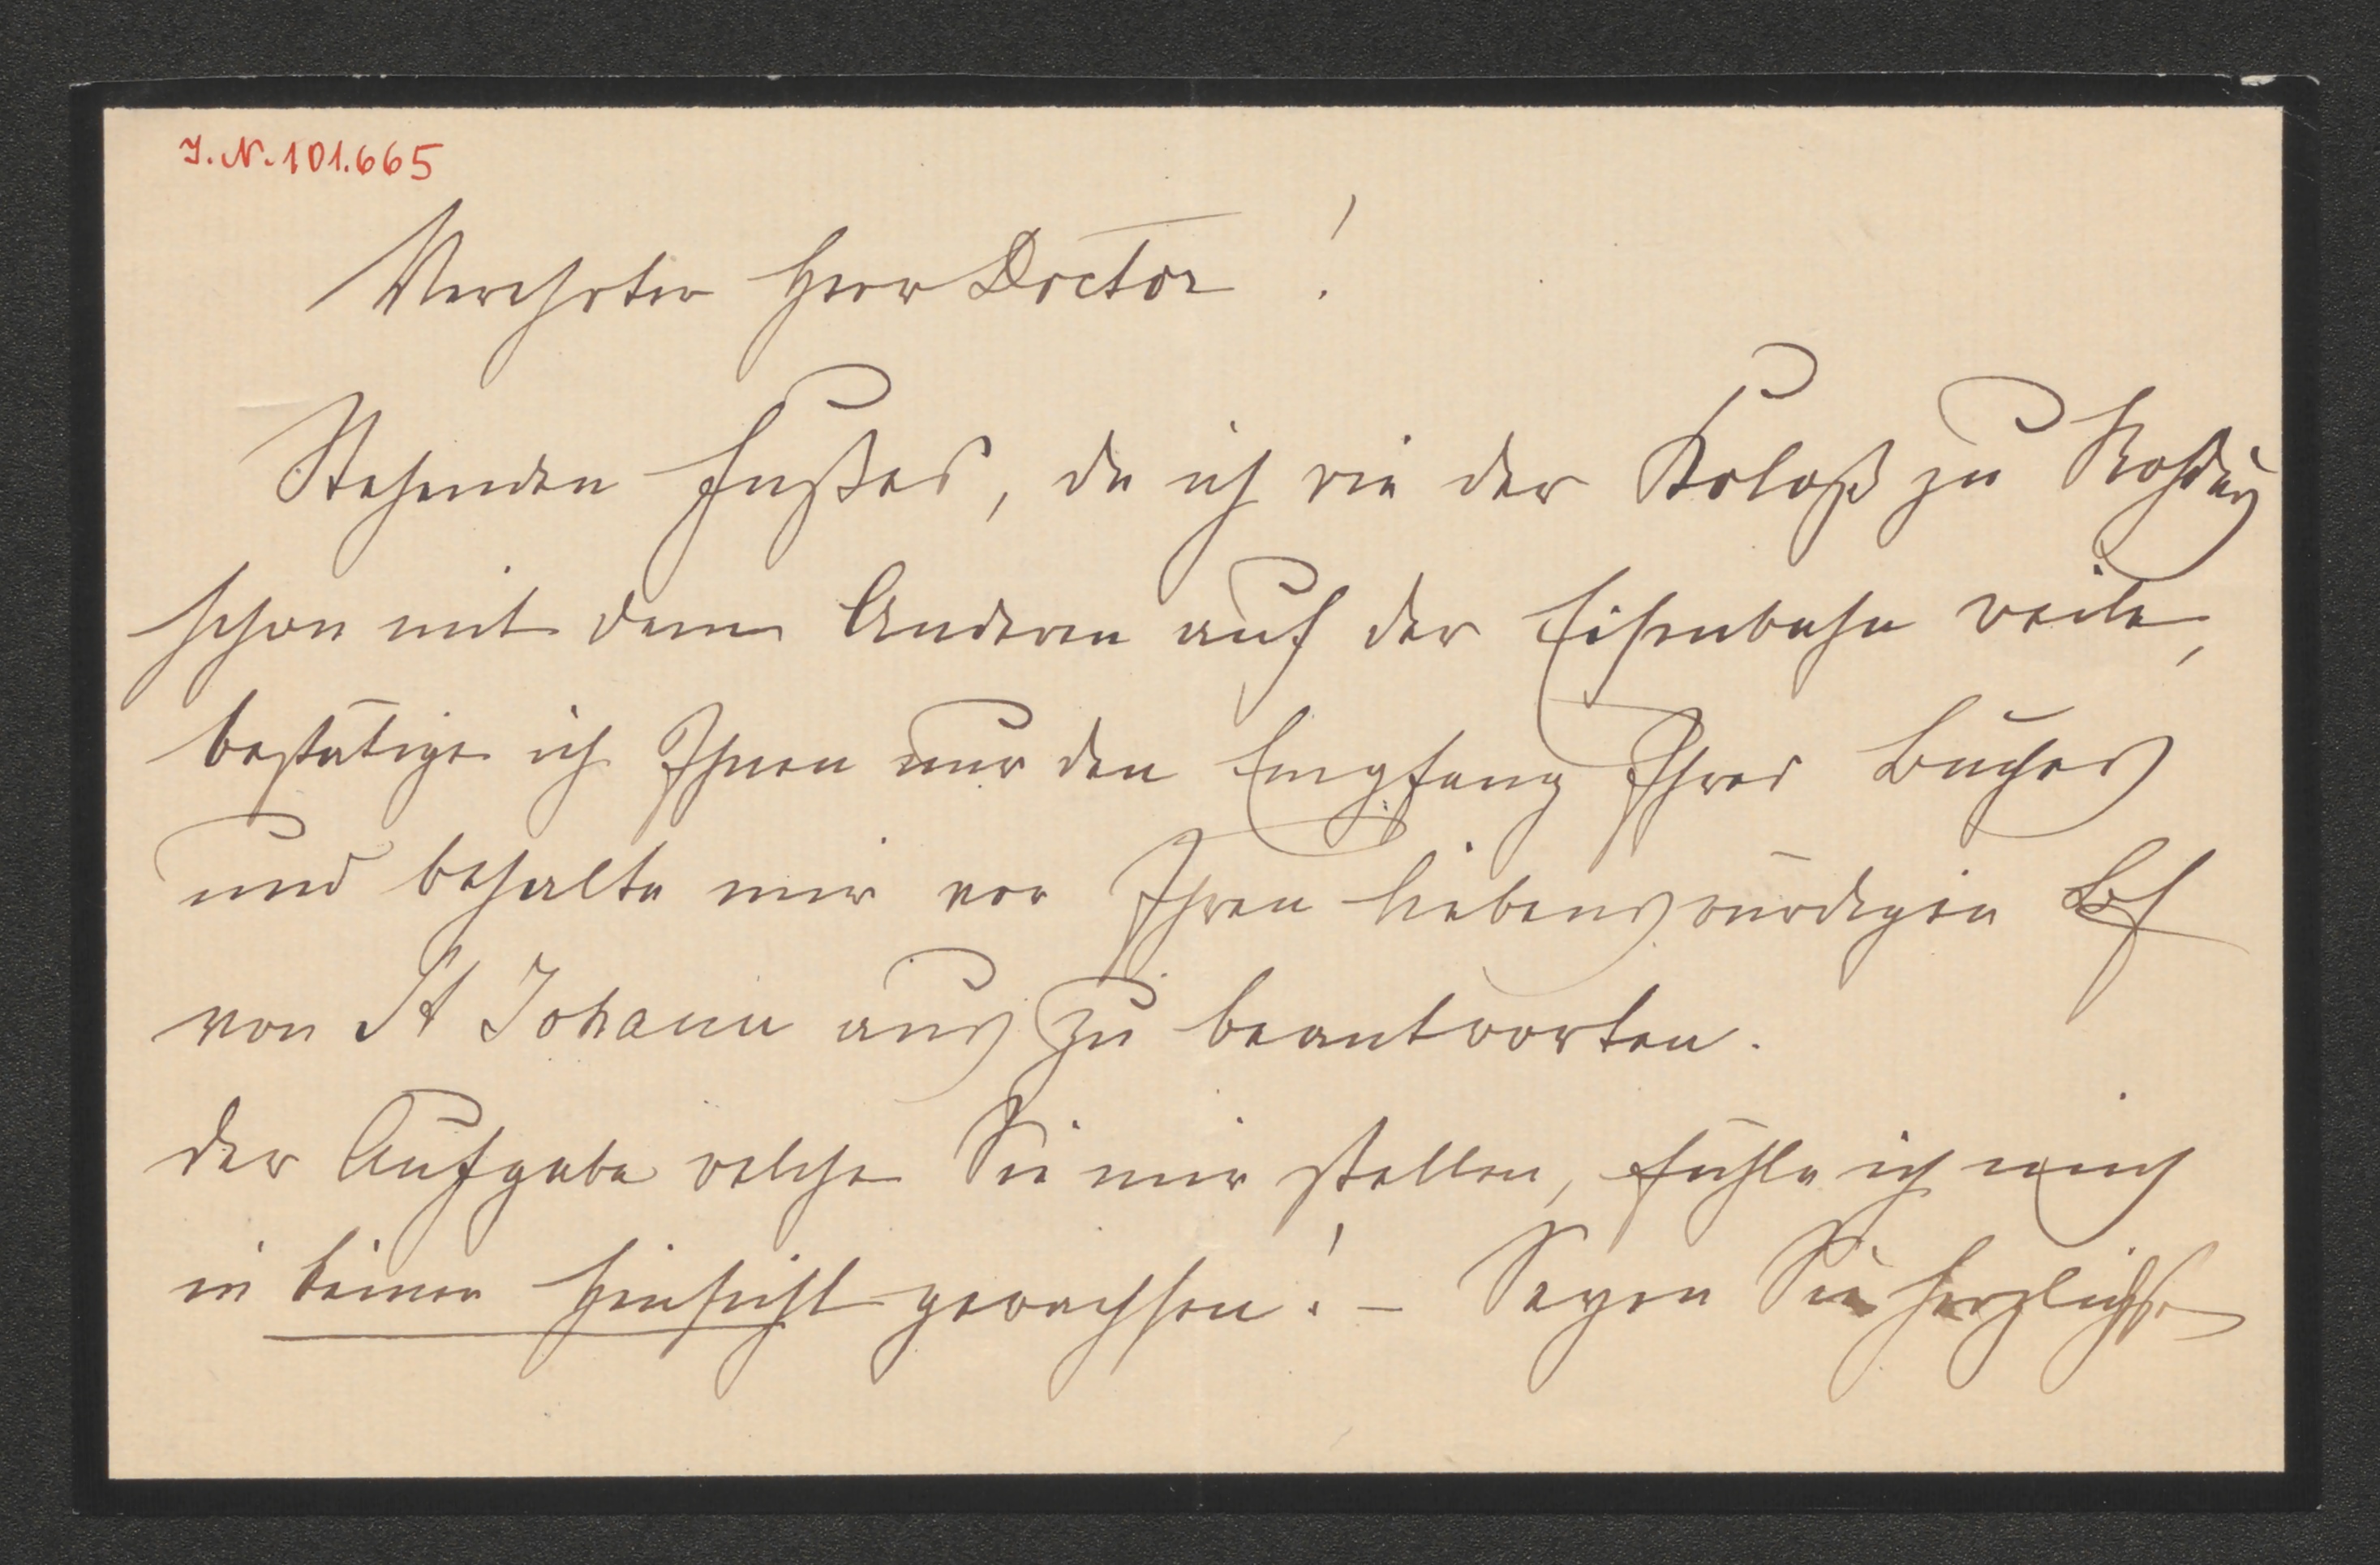 J.N. 101.665
Verehrter Herr Doctor!
Stehenden Fußes, da ich wie der Koloß zu Rhodus
schon mit dem Anderen auf der Eisenbahn weile,
bestätige ich Ihnen nur den Empfang Ihres Buches
und behalte mir vor Ihren liebenswürdigen Bf
von St Johann aus zu beantworten.
Der Aufgabe welche Sie mir stellen, fühle ich mich
in keiner Hinsicht gewachsen! – Seyen Sie herzlichst